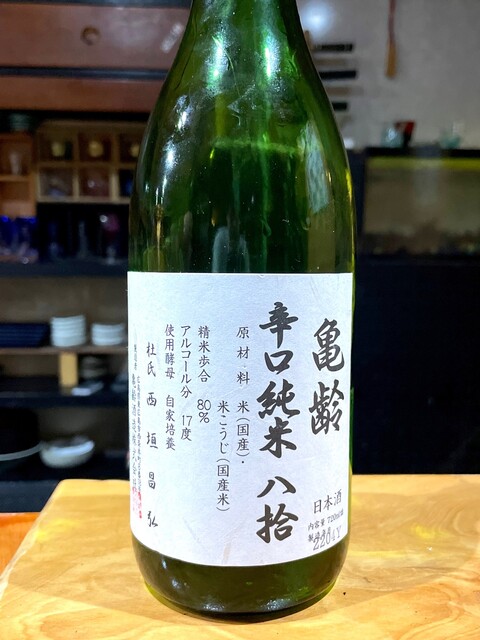 亀齢
辛口純米 八拾
原材料 米(国産)・
米こうじ(国産米)
精米歩合 80%
アルコール分 17度
使用酵母 自家培養
杜氏 西垣昌弘
日本酒
内容量 720ml